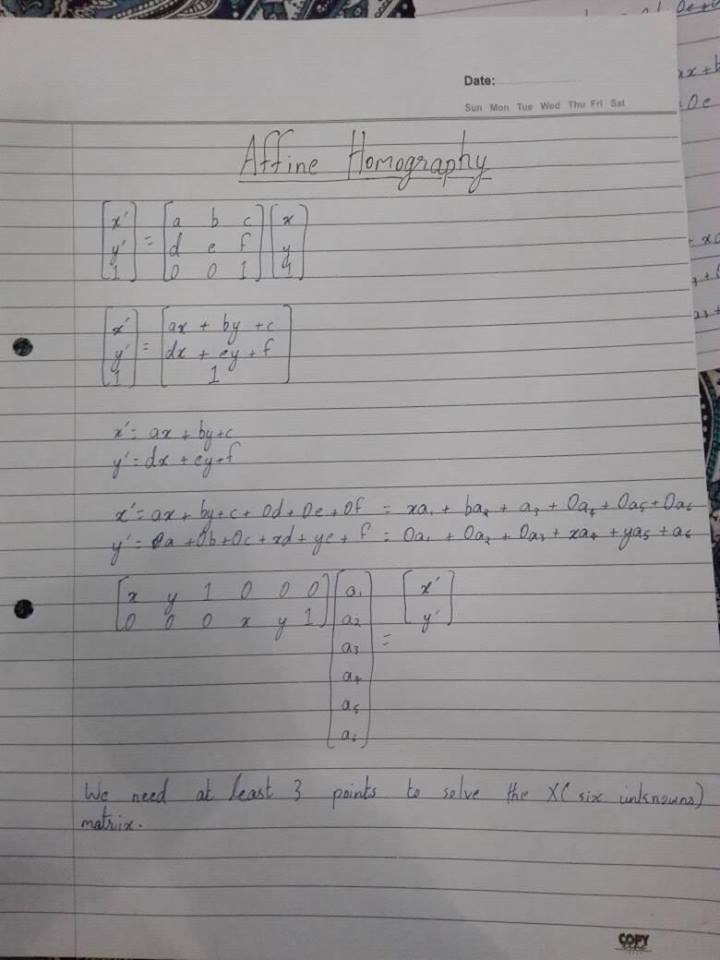 Date:
Sun Mon Tue Wed Thu Fri Sat
Affine Homography
[x' y' 1] = [a b c; d e f; 0 0 1] [x y 1]
[x' y' 1] = [ax + by + c; dx + ey + f; 1]
x' = ax + by + c
y' = dx + ey + f
x' = ax + by + c + 0d + 0e + 0f = xa₁ + ba₂ + a₃ + 0a₄ + 0a₅ + 0a₆
y' = 0a + 0b + 0c + xd + ye + f = 0a₁ + 0a₂ + 0a₃ + xa₄ + ya₅ + a₆
[x y 1 0 0 0; 0 0 0 x y 1] [a₁ a₂ a₃ a₄ a₅ a₆] = [x' y']
We need at least 3 points to solve the X (six unknowns)
matrix.
COPY